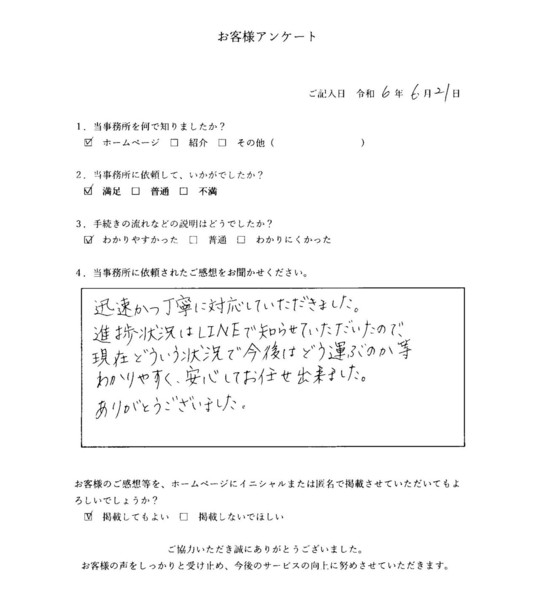 お客様アンケート
ご記入日 令和 6 年 6 月 21 日
1．当事務所を何で知りましたか？
☑ ホームページ □ 紹介 □ その他（ ）
2．当事務所に依頼して、いかがでしたか？
☑ 満足 □ 普通 □ 不満
3．手続きの流れなどの説明はどうでしたか？
☑ わかりやすかった □ 普通 □ わかりにくかった
4．当事務所に依頼されたご感想をお聞かせください。
迅速かつ丁寧に対応していただきました。
進捗状況はLINEで知らせていただいたので、
現在どういう状況で今後はどう運ぶのか等
わかりやすく、安心してお任せ出来ました。
ありがとうございました。
お客様のご感想等を、ホームページにイニシャルまたは匿名で掲載させていただいてもよ
ろしいでしょうか？
☑ 掲載してもよい □ 掲載しないでほしい
ご協力いただき誠にありがとうございました。
お客様の声をしっかりと受け止め、今後のサービスの向上に努めさせていただきます。